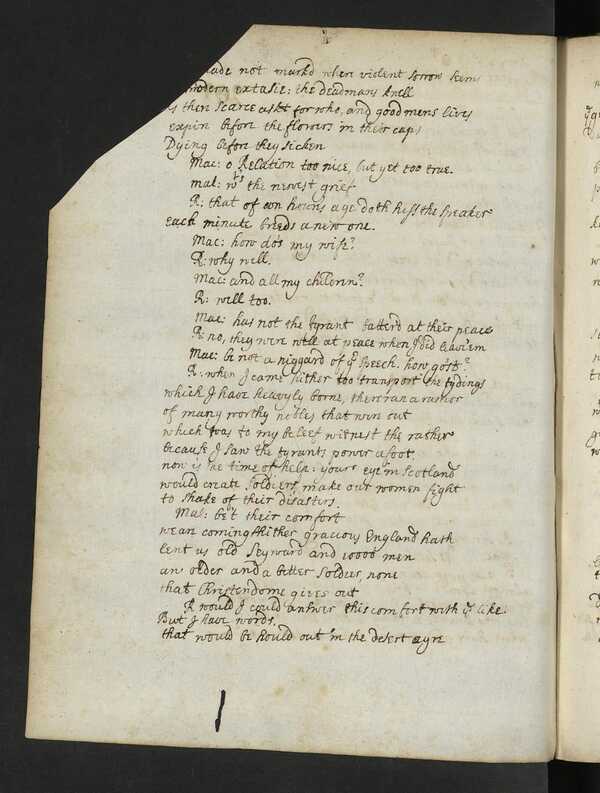 made not markd when violent sorrow seems
modern extasie: the deadmans knell
is then scarce askt for who, and good mens lives
expire before the flowers in their caps
Dying before they sicken
Mac: o Relation too nice, but yet too true.
mal: wts the newest grief
R: that of own hours age doth hiss the speaker
each minute breeds a new one.
Mac: how dos my wife?
R: why well.
Mac: and all my children?
R: well too.
Mac: has not the tyrant batterd at their peace
R: no, they were well at peace when I did leave em
Mac: be not a niggard of yr speech. how gost?
R: when I came hither too transport the tydings
which I have heavyly borne, there ran a rumor
of many worthy nobles that were out
which was to my beleef witnest the rather
because I saw the tyrants power afoot
now is the time of help: your eye in Scotland
would create soldiers, make our women fight
to shake of their disasters.
Mal: be't their comfort
we are coming thither gracious England hath
lent us old Seyward and 10000 men
an older and a better soldier, none
that Christendome gives out
R would I could answer this comfort with ye like.
But I have words,
that would be hould out in the desert ayre